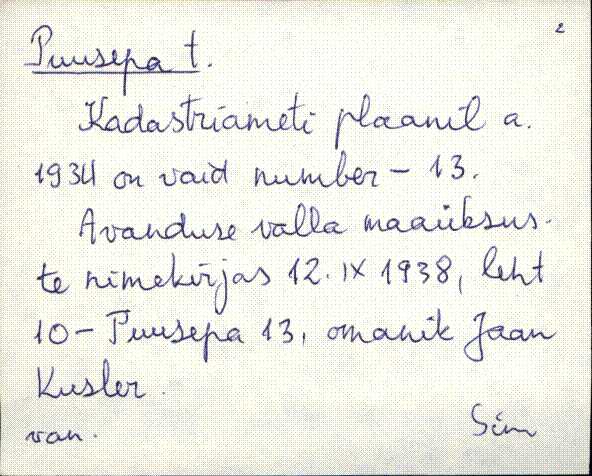 2
Puusepa t.
Kadastriameti plaanil a.
1934 on vaid number - 13.
Avanduse valla maaüksus-
te nimekirjas 12. IX 1938, leht
10 - Puusepa 13, omanik Jaan
Kusler.
van. Sim